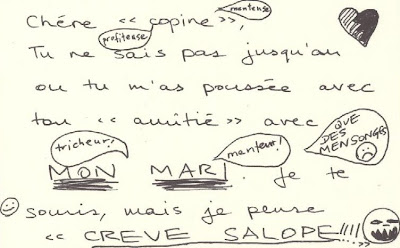 menteuse
Chére << copine >>,
profiteuse
Tu ne sais pas jusqu'au
ou tu m'as poussée avec
ton << amitié >> avec
tricheur!
menteur!
QUE DES MENSONGES
MON MARI. Je te
souris, mais je pense
<< CREVE SALOPE!!!! >>